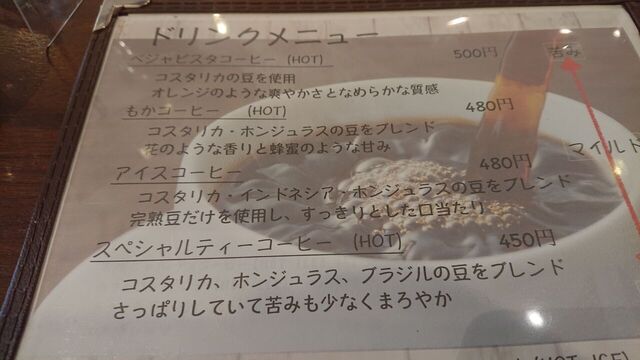 ドリンクメニュー
ベジャビスタコーヒー (HOT) 500円 苦み
コスタリカの豆を使用
オレンジのような爽やかさとなめらかな質感
もかコーヒー (HOT) 480円
コスタリカ・ホンジュラスの豆をブレンド
花のような香りと蜂蜜のような甘み
マイルド
アイスコーヒー 480円
コスタリカ・インドネシア・ホンジュラスの豆をブレンド
完熟豆だけを使用し、すっきりとした口当たり
スペシャルティーコーヒー (HOT) 450円
コスタリカ、ホンジュラス、ブラジルの豆をブレンド
さっぱりしていて苦みも少なくまろやか